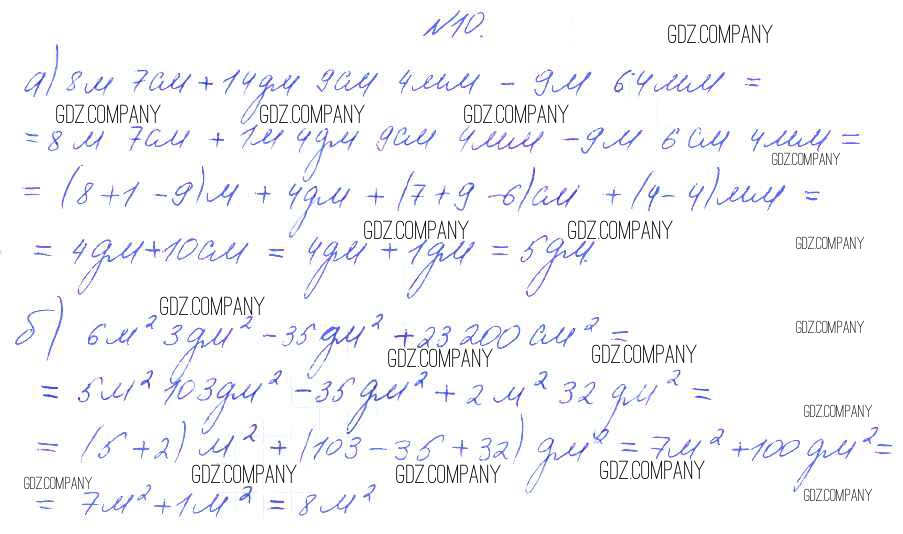 №10.
GDZ.COMPANY
а) 8м 7см + 14дм 9см 4мм - 9м 64мм =
GDZ.COMPANY GDZ.COMPANY GDZ.COMPANY
= 8м 7см + 1м 4дм 9см 4мм - 9м 6см 4мм =
GDZ.COMPANY
= (8+1-9)м + 4дм + (7+9-6)см + (4-4)мм =
GDZ.COMPANY GDZ.COMPANY
= 4дм + 10см = 4дм + 1дм = 5дм.
GDZ.COMPANY
GDZ.COMPANY
б) 6м² 3дм² - 35дм² + 23200см² =
GDZ.COMPANY
GDZ.COMPANY GDZ.COMPANY
= 5м² 103дм² - 35дм² + 2м² 32дм² =
GDZ.COMPANY
= (5+2)м² + (103-35+32)дм² = 7м² + 100дм² =
GDZ.COMPANY GDZ.COMPANY GDZ.COMPANY GDZ.COMPANY
= 7м² + 1м² = 8м²
GDZ.COMPANY